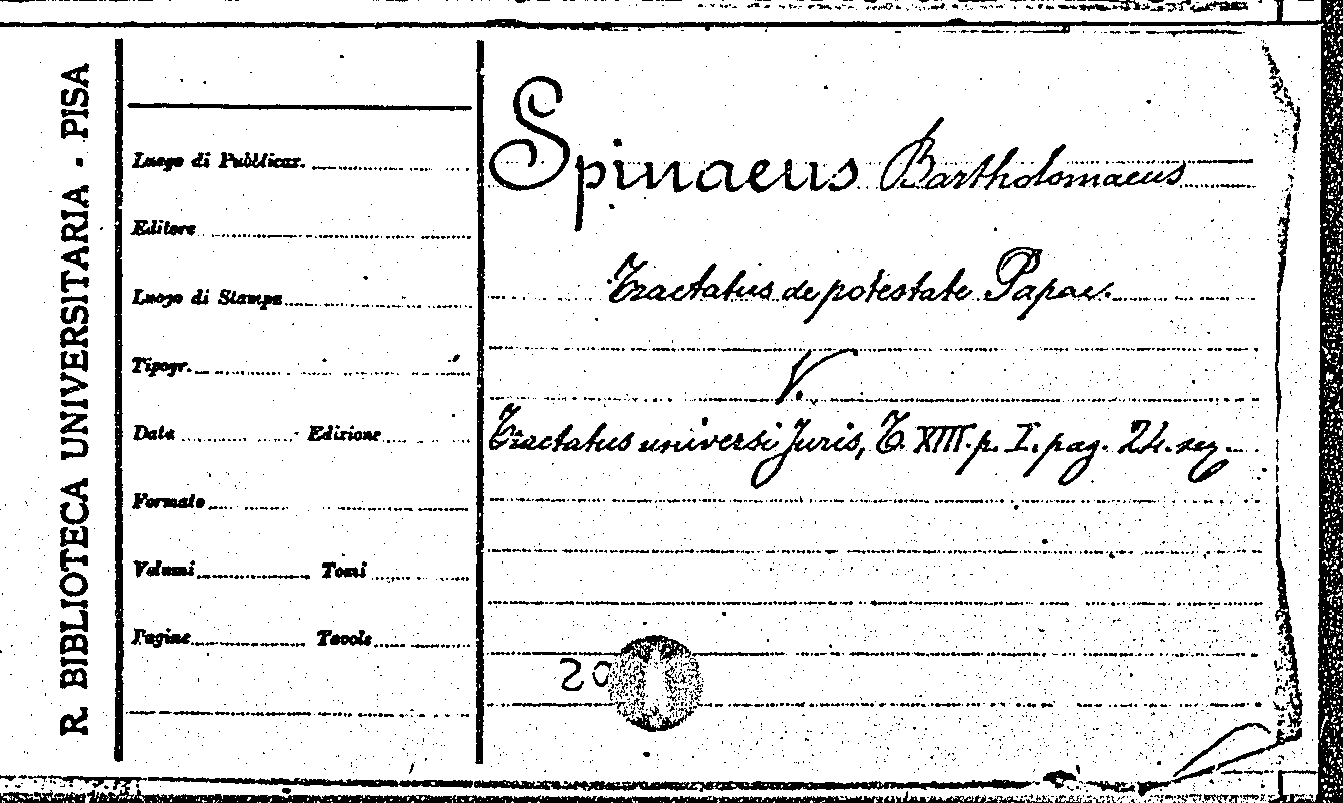 R. BIBLIOTECA UNIVERSITARIA - PISA
Luogo di Pubblicaz.
Editore
Luogo di Stampa
Tipogr.
Data Edizione
Formato
Volumi Tomi
Pagine Tavole
Spinaeus Bartholomaeus
Tractatus de potestate Papae.
V.
Tractatus universi Juris, T. XIII. p. I. pag. 24. seq.
20